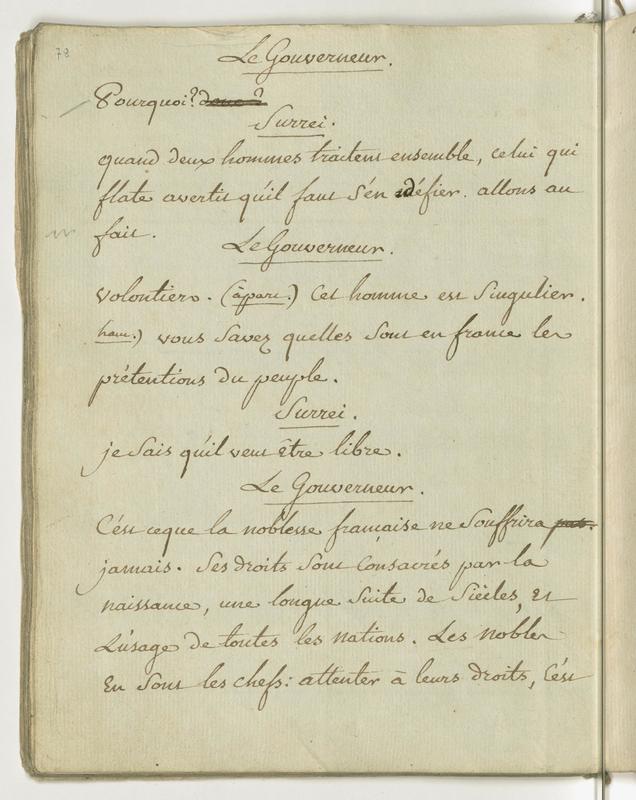 78
Le Gouverneur.
Pourquoi? donc?
Surrei.
quand deux hommes traitent ensemble, celui qui
flate avertit qu'il faut s'en défier. allons au
fait.
Le Gouverneur.
volontiers. (àpart.) Cet homme est singulier.
haut.) vous savez quelles sont en france les
prétentions du peuple.
Surrei.
je sais qu'il veut être libre.
Le Gouverneur.
C'est ceque la noblesse française ne souffrira pas.
jamais. Ses droits sont consacrés par la
naissance, une longue suite de siècles, et
L'usage de toutes les nations. Les nobles
En sont les chefs: attenter à leurs droits, C'est